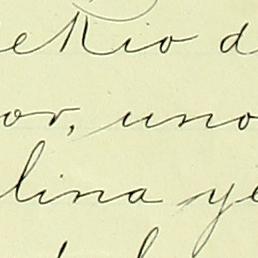 ekio d
or, uno
lina ye